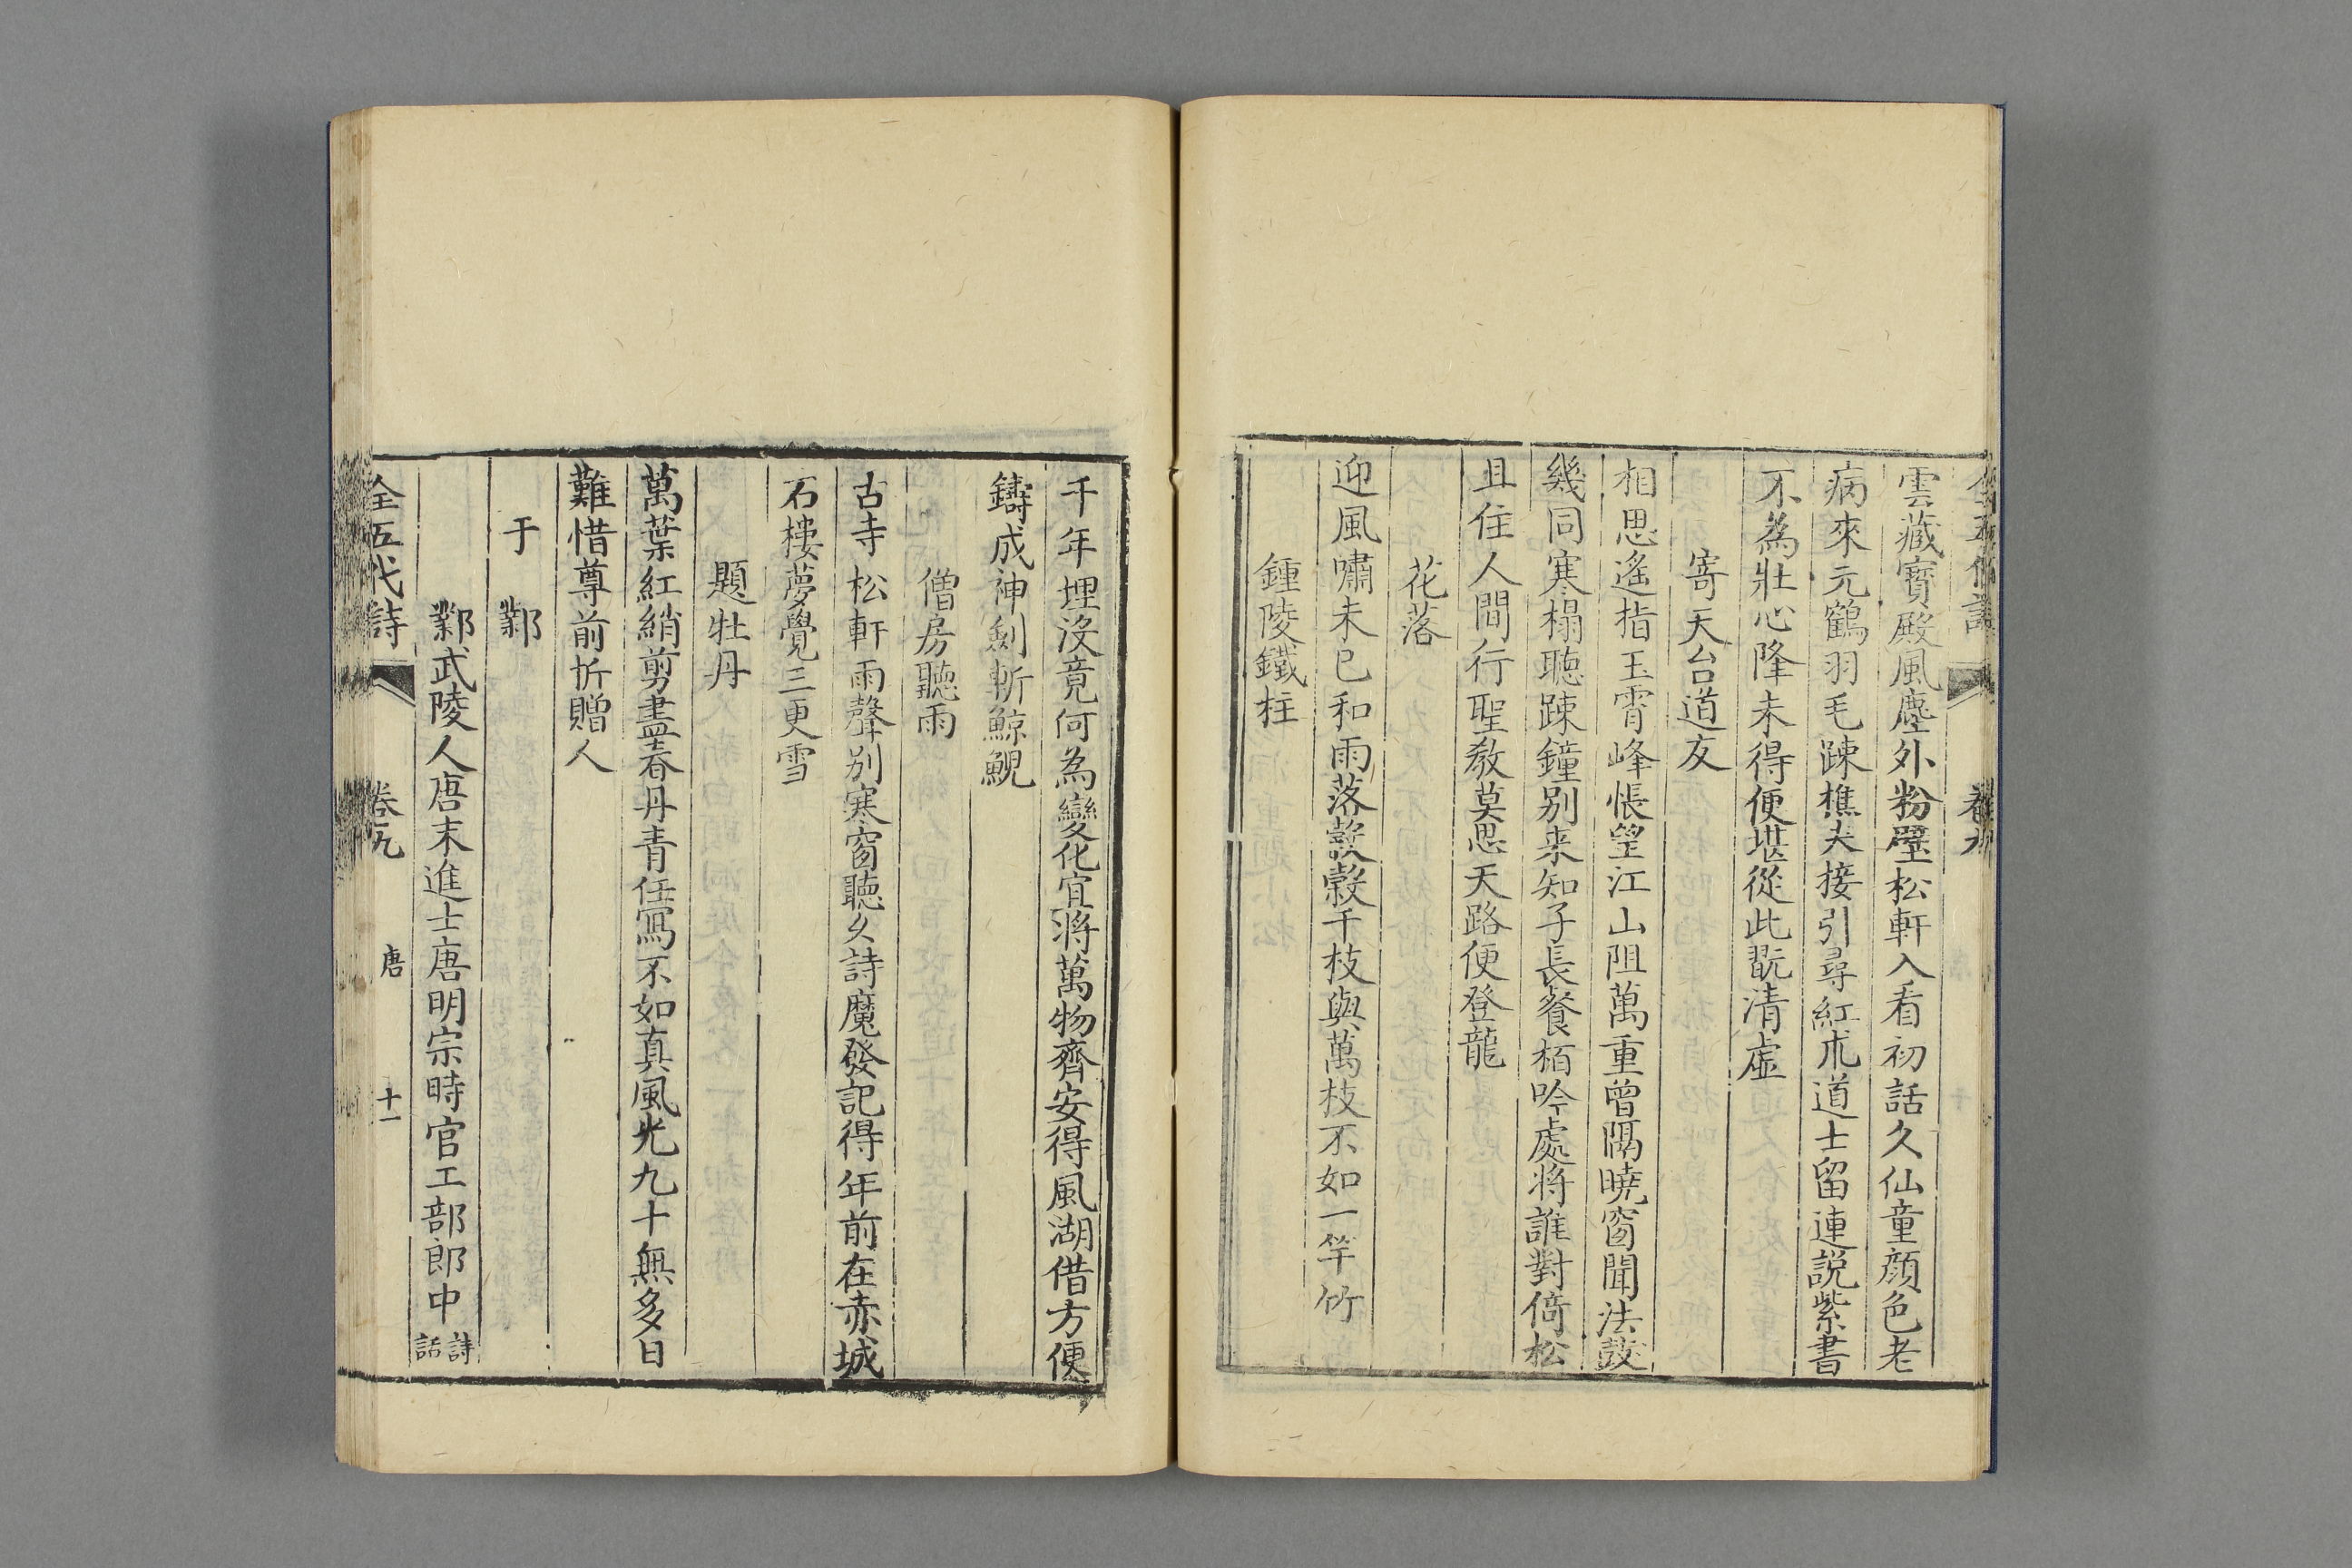 雲藏寶殿風塵外粉壁松軒入看初話久仙童顔色老
病來元鶴羽毛踈樵夫接引尋紅朮道士留連説紫書
不為壯心降未得便堪從此翫清虛
寄天台道友
相思遙指玉霄峰悵望江山阻萬重曾隔曉窗聞法鼓
幾同寒榻聽踈鐘別来知子長餐栢吟處將誰對倚松
且住人間行聖教莫思天路便登龍
花落
迎風嘯未已和雨落瑴瑴千枝與萬枝不如一竿竹
鍾陵鐵柱
千年埋沒竟何為變化宜將萬物齊安得風湖借方便
鑄成神劍斬鯨鯢
僧房聽雨
古寺松軒雨聲別寒窗聽久詩魔發記得年前在赤城
石樓夢覺三更雪
題牡丹
萬葉紅綃剪盡春丹青任寫不如真風光九十無多日
難惜尊前折贈人
于鄴
鄴武陵人唐末進士唐明宗時官工部郎中詩話
全五代詩 卷九 唐 十一